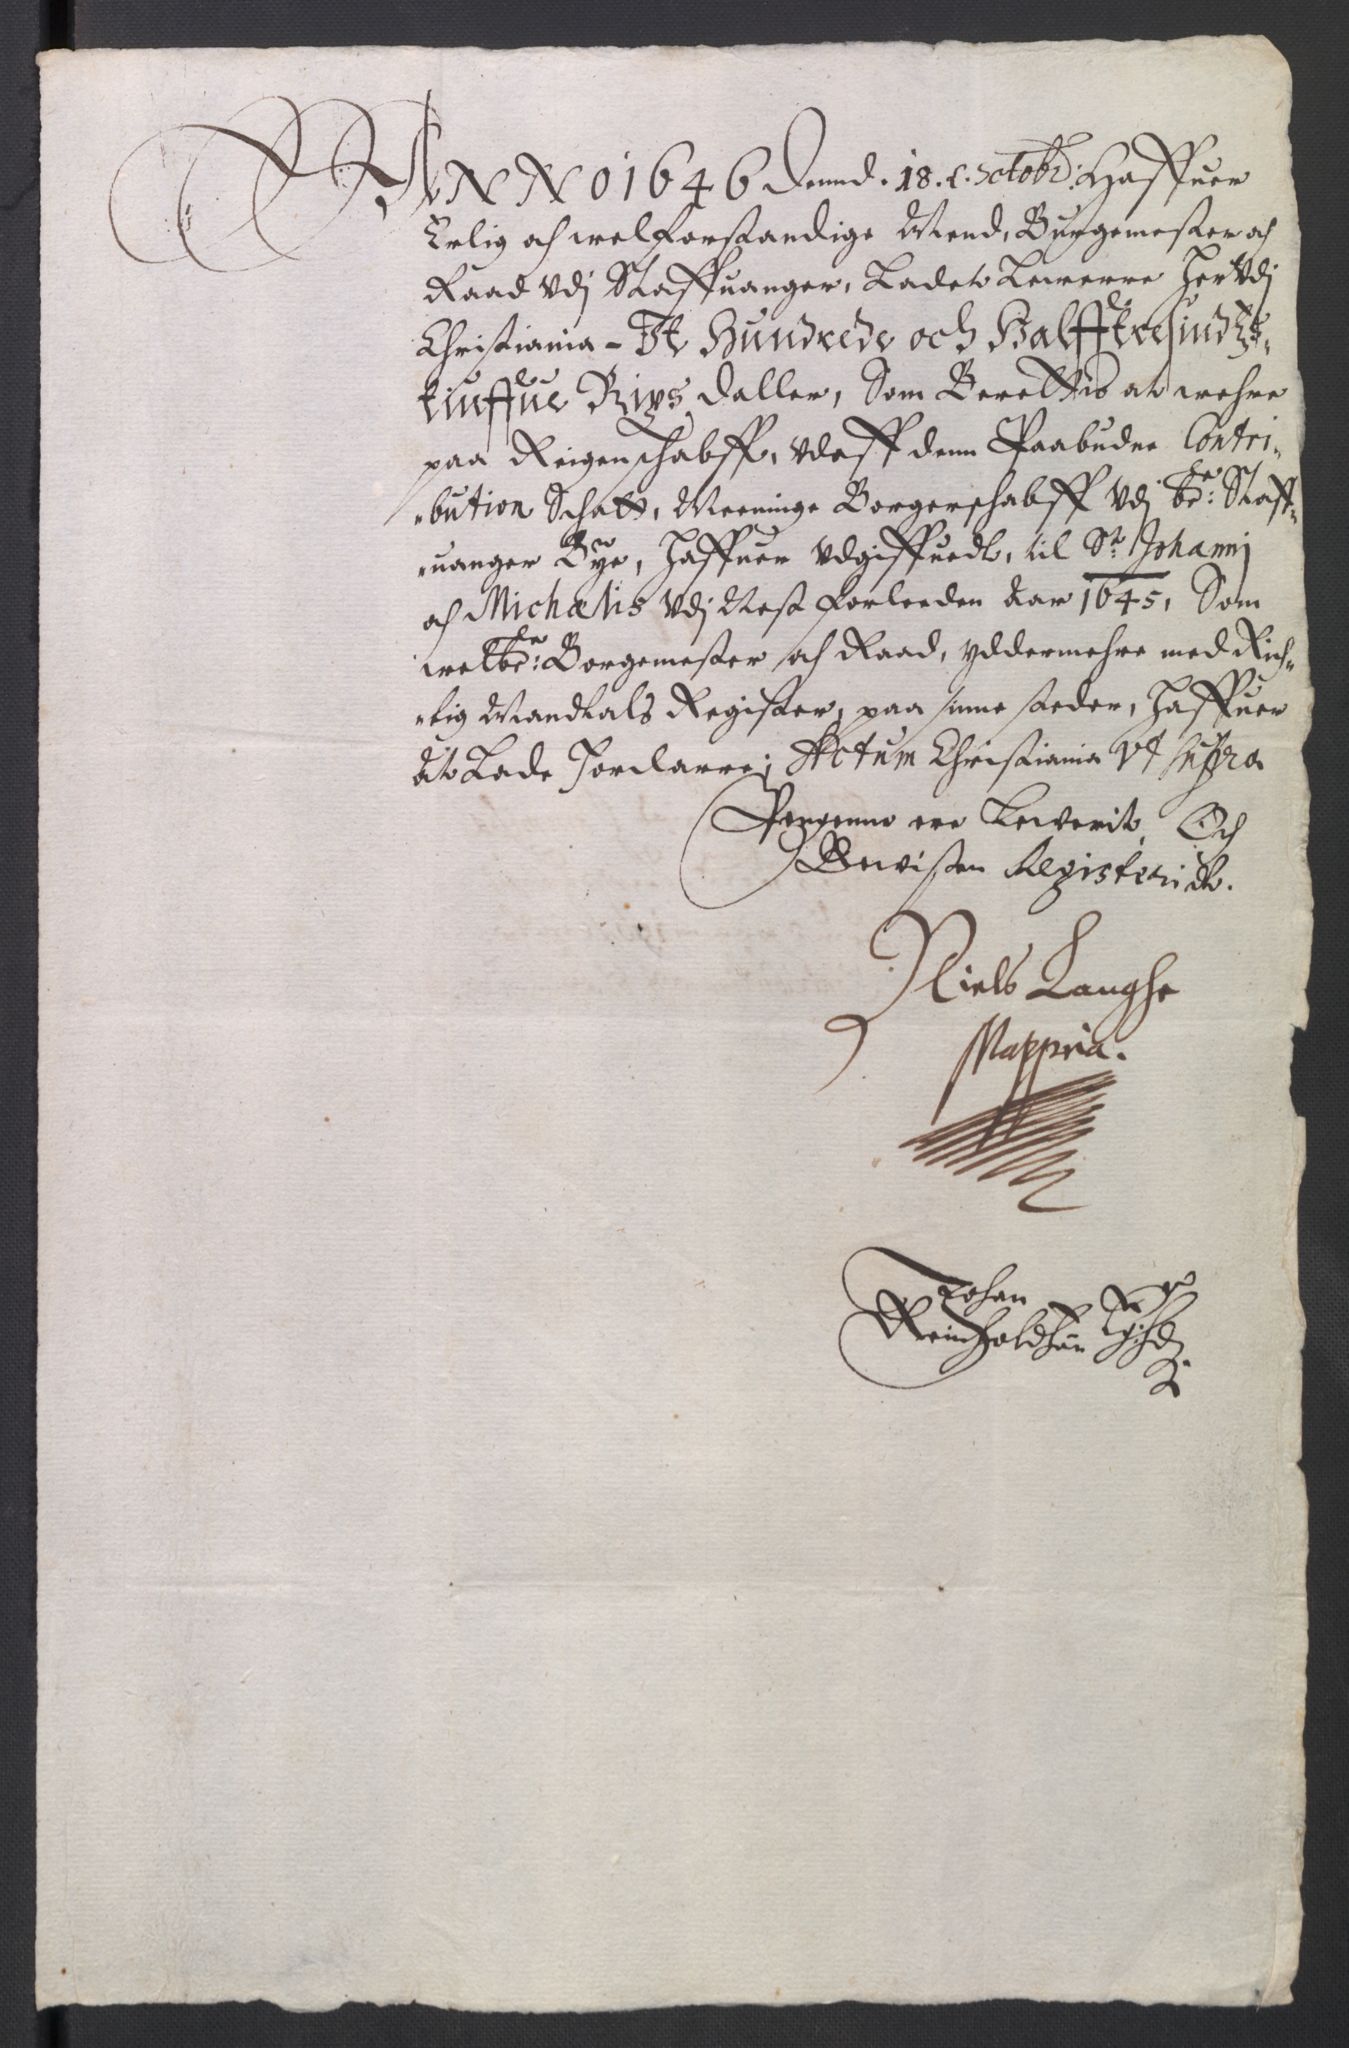 ANNO 1646 dennd. 18. Octobr: Haffuer
Erlig och welforstandige Mend, Burgemester och
Raad Vdj Staffuanger, Ladet Leuerre her Vdj
Christiania – Et Hundrede och Halfftresindtz-
tiuffue Rixs daller, Som Berettis at wehre
paa Reigenschabff, vdaff denn Paabudne Contri-
bution Schatt, Meeninge Borgerschabff Vdj bete: Staff-
uanger Bye, haffuer vdgiffuedt, til St Johannj
och Michaelis Vdj Nest forleeden Aar 1645, Som
welbete: Borgemester och Raad, yddermehre med Rich-
tig Mandtals Register, paa sinne steder, haffuer
at Lade forclarre; Actum Christiania Vt supra
Pengenne ere Leverit, Och
Bewisten Registeridt.
Niels Langhe
Mappria.
Johan
Reinholdsøn